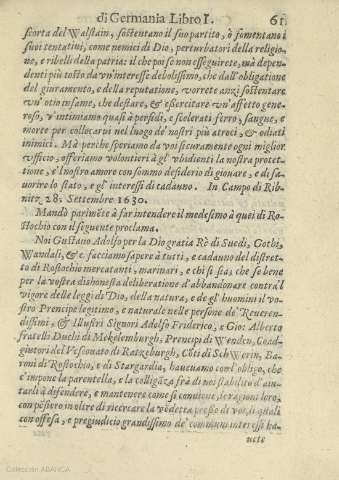 di Germania Libro I. 61
scorta del Walstain, sostentano il suo partito, ò fomentano i
suoi tentatini, come nemici di Dio, perturbatori della religio-
ne, e ribelli della patria: il che poi se non esseguirete, mà depen-
denti più tosto da vn'interesse debolissimo, che dall'obligatione
del giuramento, e della reputatione, vorrete anzi sostentare
vn'otio infame, che destare, & essercitare vn'affetto gene-
roso, v'intimiamo quasi à perfidi, e scelerati ferro, sangue, e
morte per collocarui nel luogo de' nostri più atroci, & odiati
inimici. Mà perche speriamo da voi sicuramente ogni miglior
vfficio, offeriamo volontieri à gl'vbidienti la nostra protet-
tione, e'l nostro amore con sommo desiderio di giouare, e di fa-
uorire lo stato, e gl'interessi di cadauno. In Campo di Rib-
nitz 28: Settembre 1630.
Mandò parimēte à far intendere il medesimo à quei di Ro-
stochio con il seguente proclama.
Noi Gustauo Adolfo per la Dio gratia Rè di Suedi, Gothi,
Wandali, & c. facciamo sapere à tutti, e cadauno del distret-
to di Rostochio mercatanti, marinari, e chi si sia; che se bene
per la vostra dishonesta deliberatione d'abbandonare contra'l
vigore delle leggi di Dio, della natura, e de gl'huomini il vo-
stro Prencipe legitimo, e naturale nelle persone de' Reueren-
dissimi, & Illustri Signori Adolfo Friderico, e Gio: Alberto
fratelli Duchi di Mekelemburgh, Prencipi di Wenden, Coad-
giutori del Vescouato di Ratzeburgh, Cōti di SchWerin, Ba-
roni di Rostochio, e di Stargardia, haueuamo com'obligo, che
c'impone la parentella, e la colligāza frà di noi stabilito d'aiu-
tarli à difendere, e mantenere come si conuiene, le ragioni loro,
con pēsiero in oltre di ricercare la vēdetta presso di voi, di quali
con offesa, e pregiudicio grandissimo de' communi interessi ha-
uete
Colección ABANCA